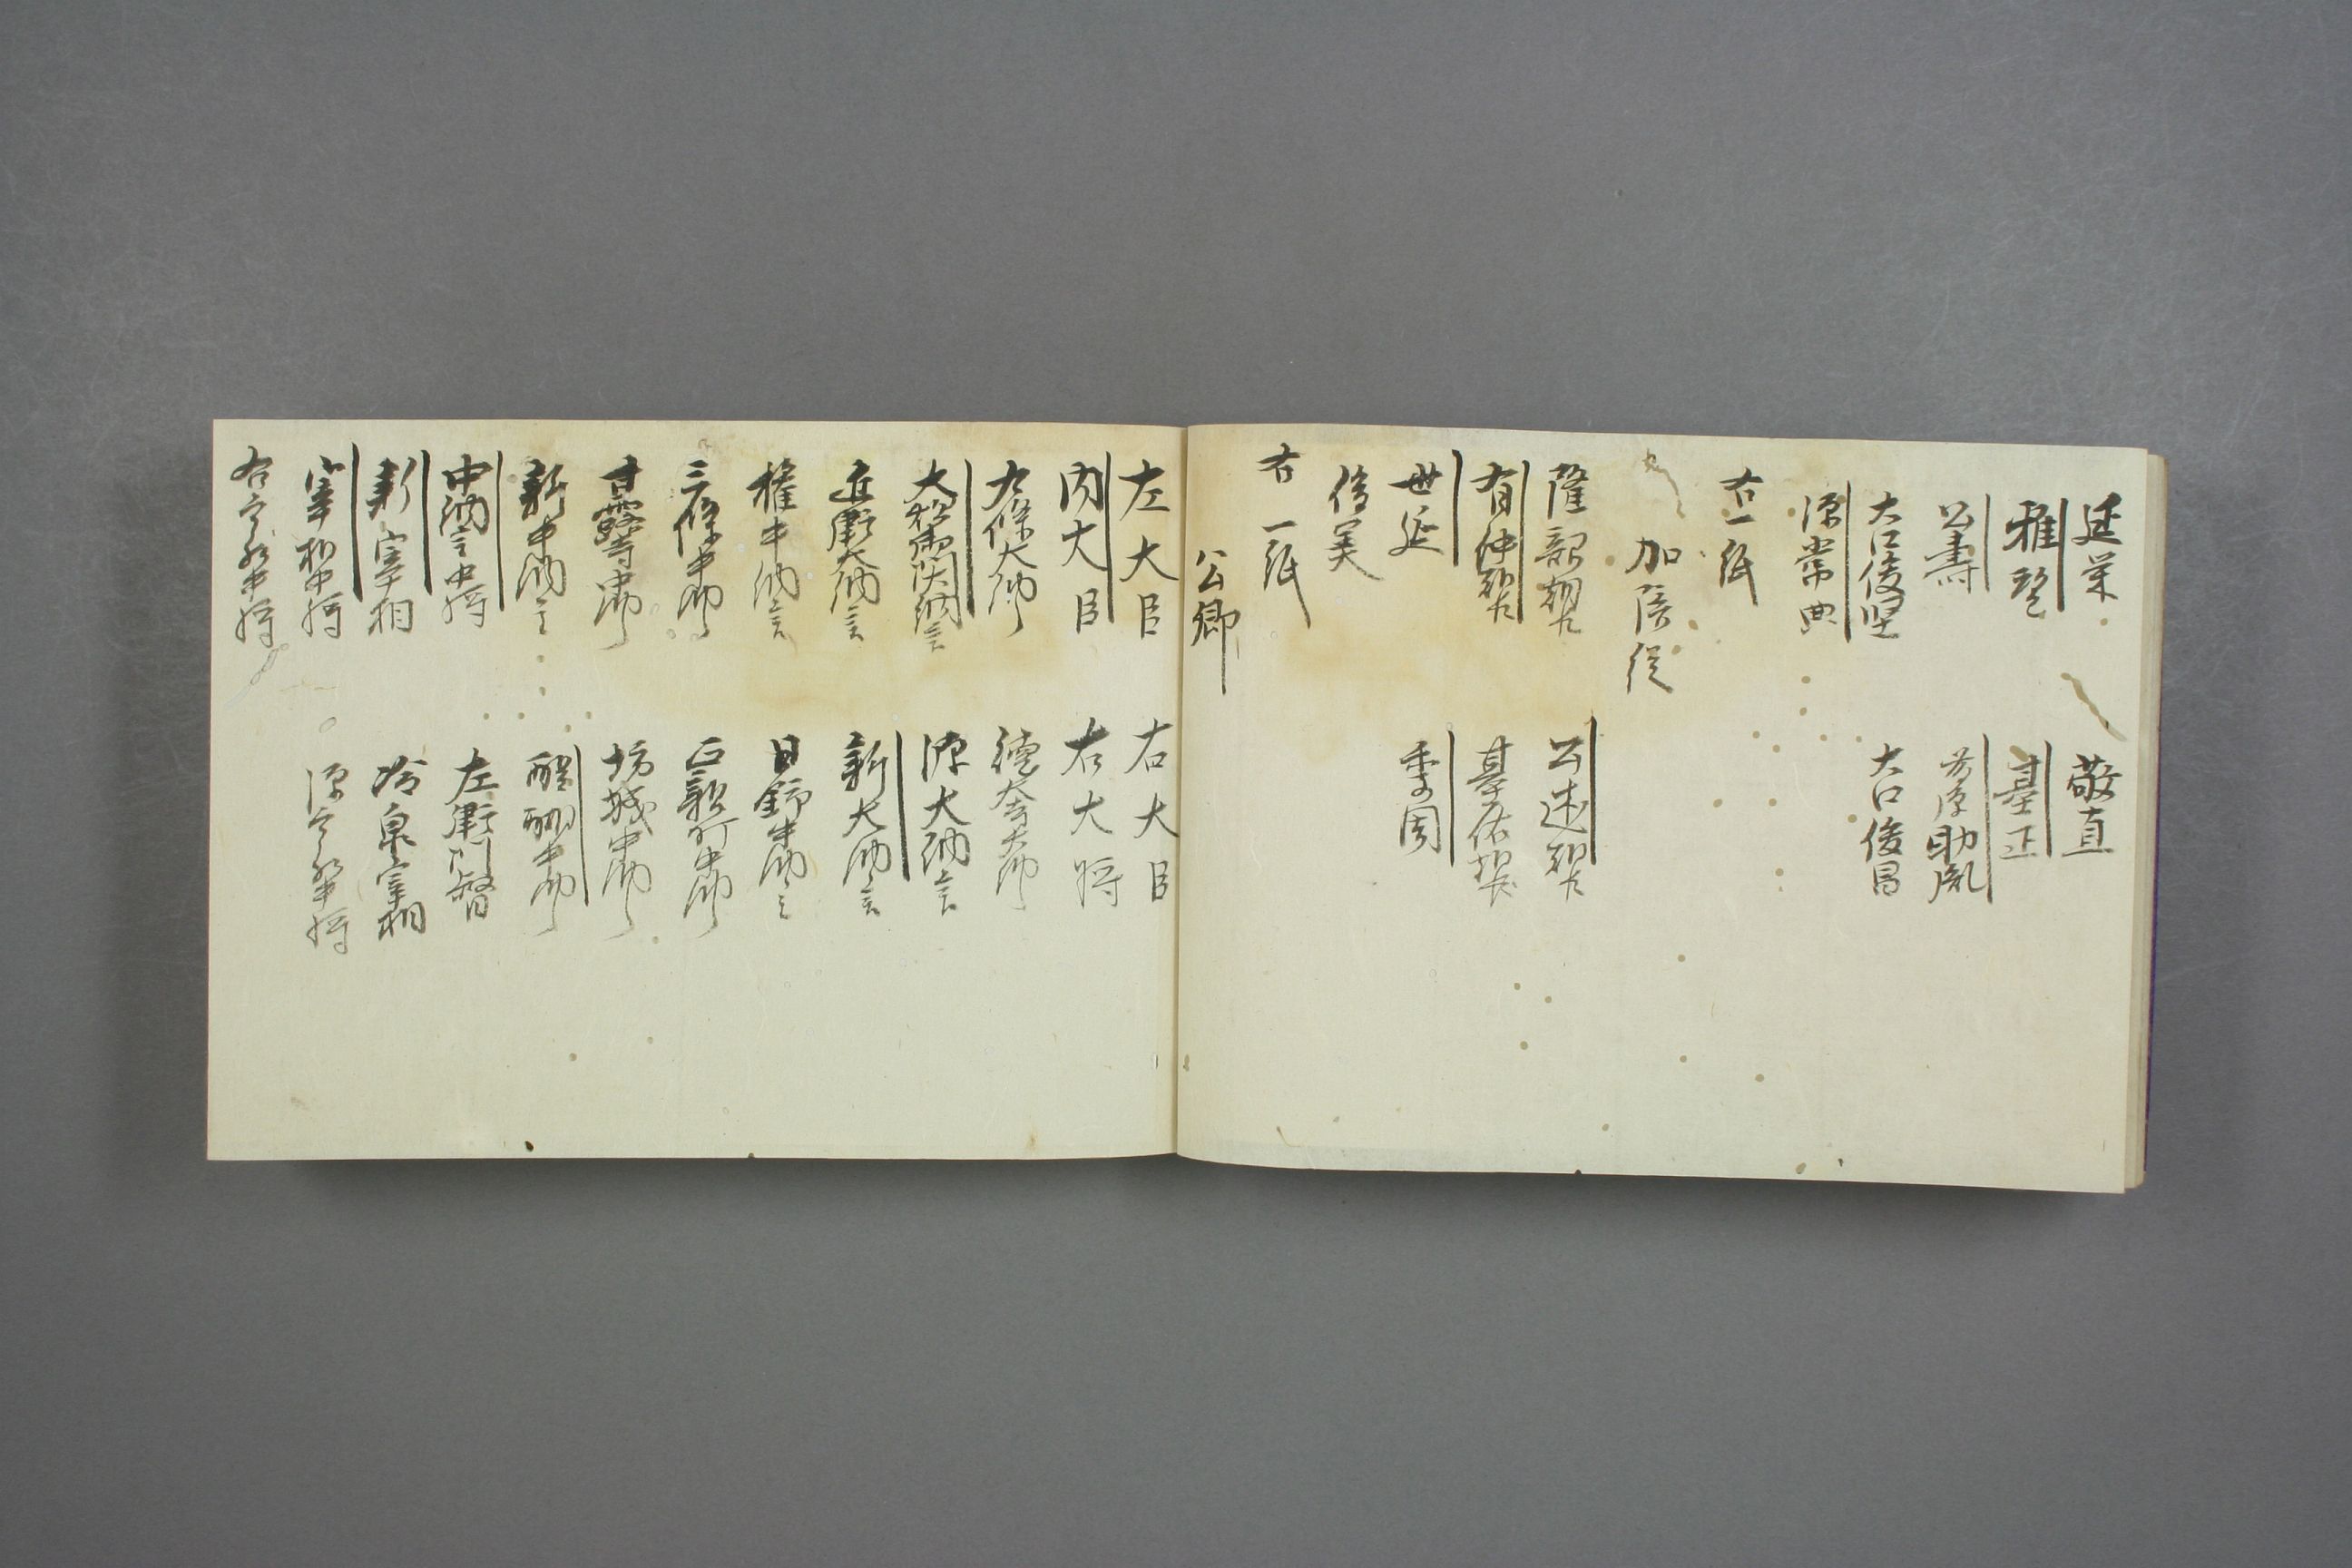 延栄
敬直
雅望
基正
公壽
藤原助胤
大江俊堅
大江俊昌
源常典
右一紙
加陪従
隆韶朝臣
公述朝臣
有仲朝臣
基佑朝臣
世延
季周
俊美
右一紙
公卿
左大臣
右大臣
内大臣
右大将
九條大納言
徳大寺大納言
大納言
源大納言
近衛大納言
新大納言
権中納言
日野中納言
三條中納言
正親町中納言
甘露寺中納言
坊城中納言
新中納言
醍醐中納言
中納言中将
左衛門督
新宰相
冷泉宰相
宰相中将
源宰相中将
右宰相中将